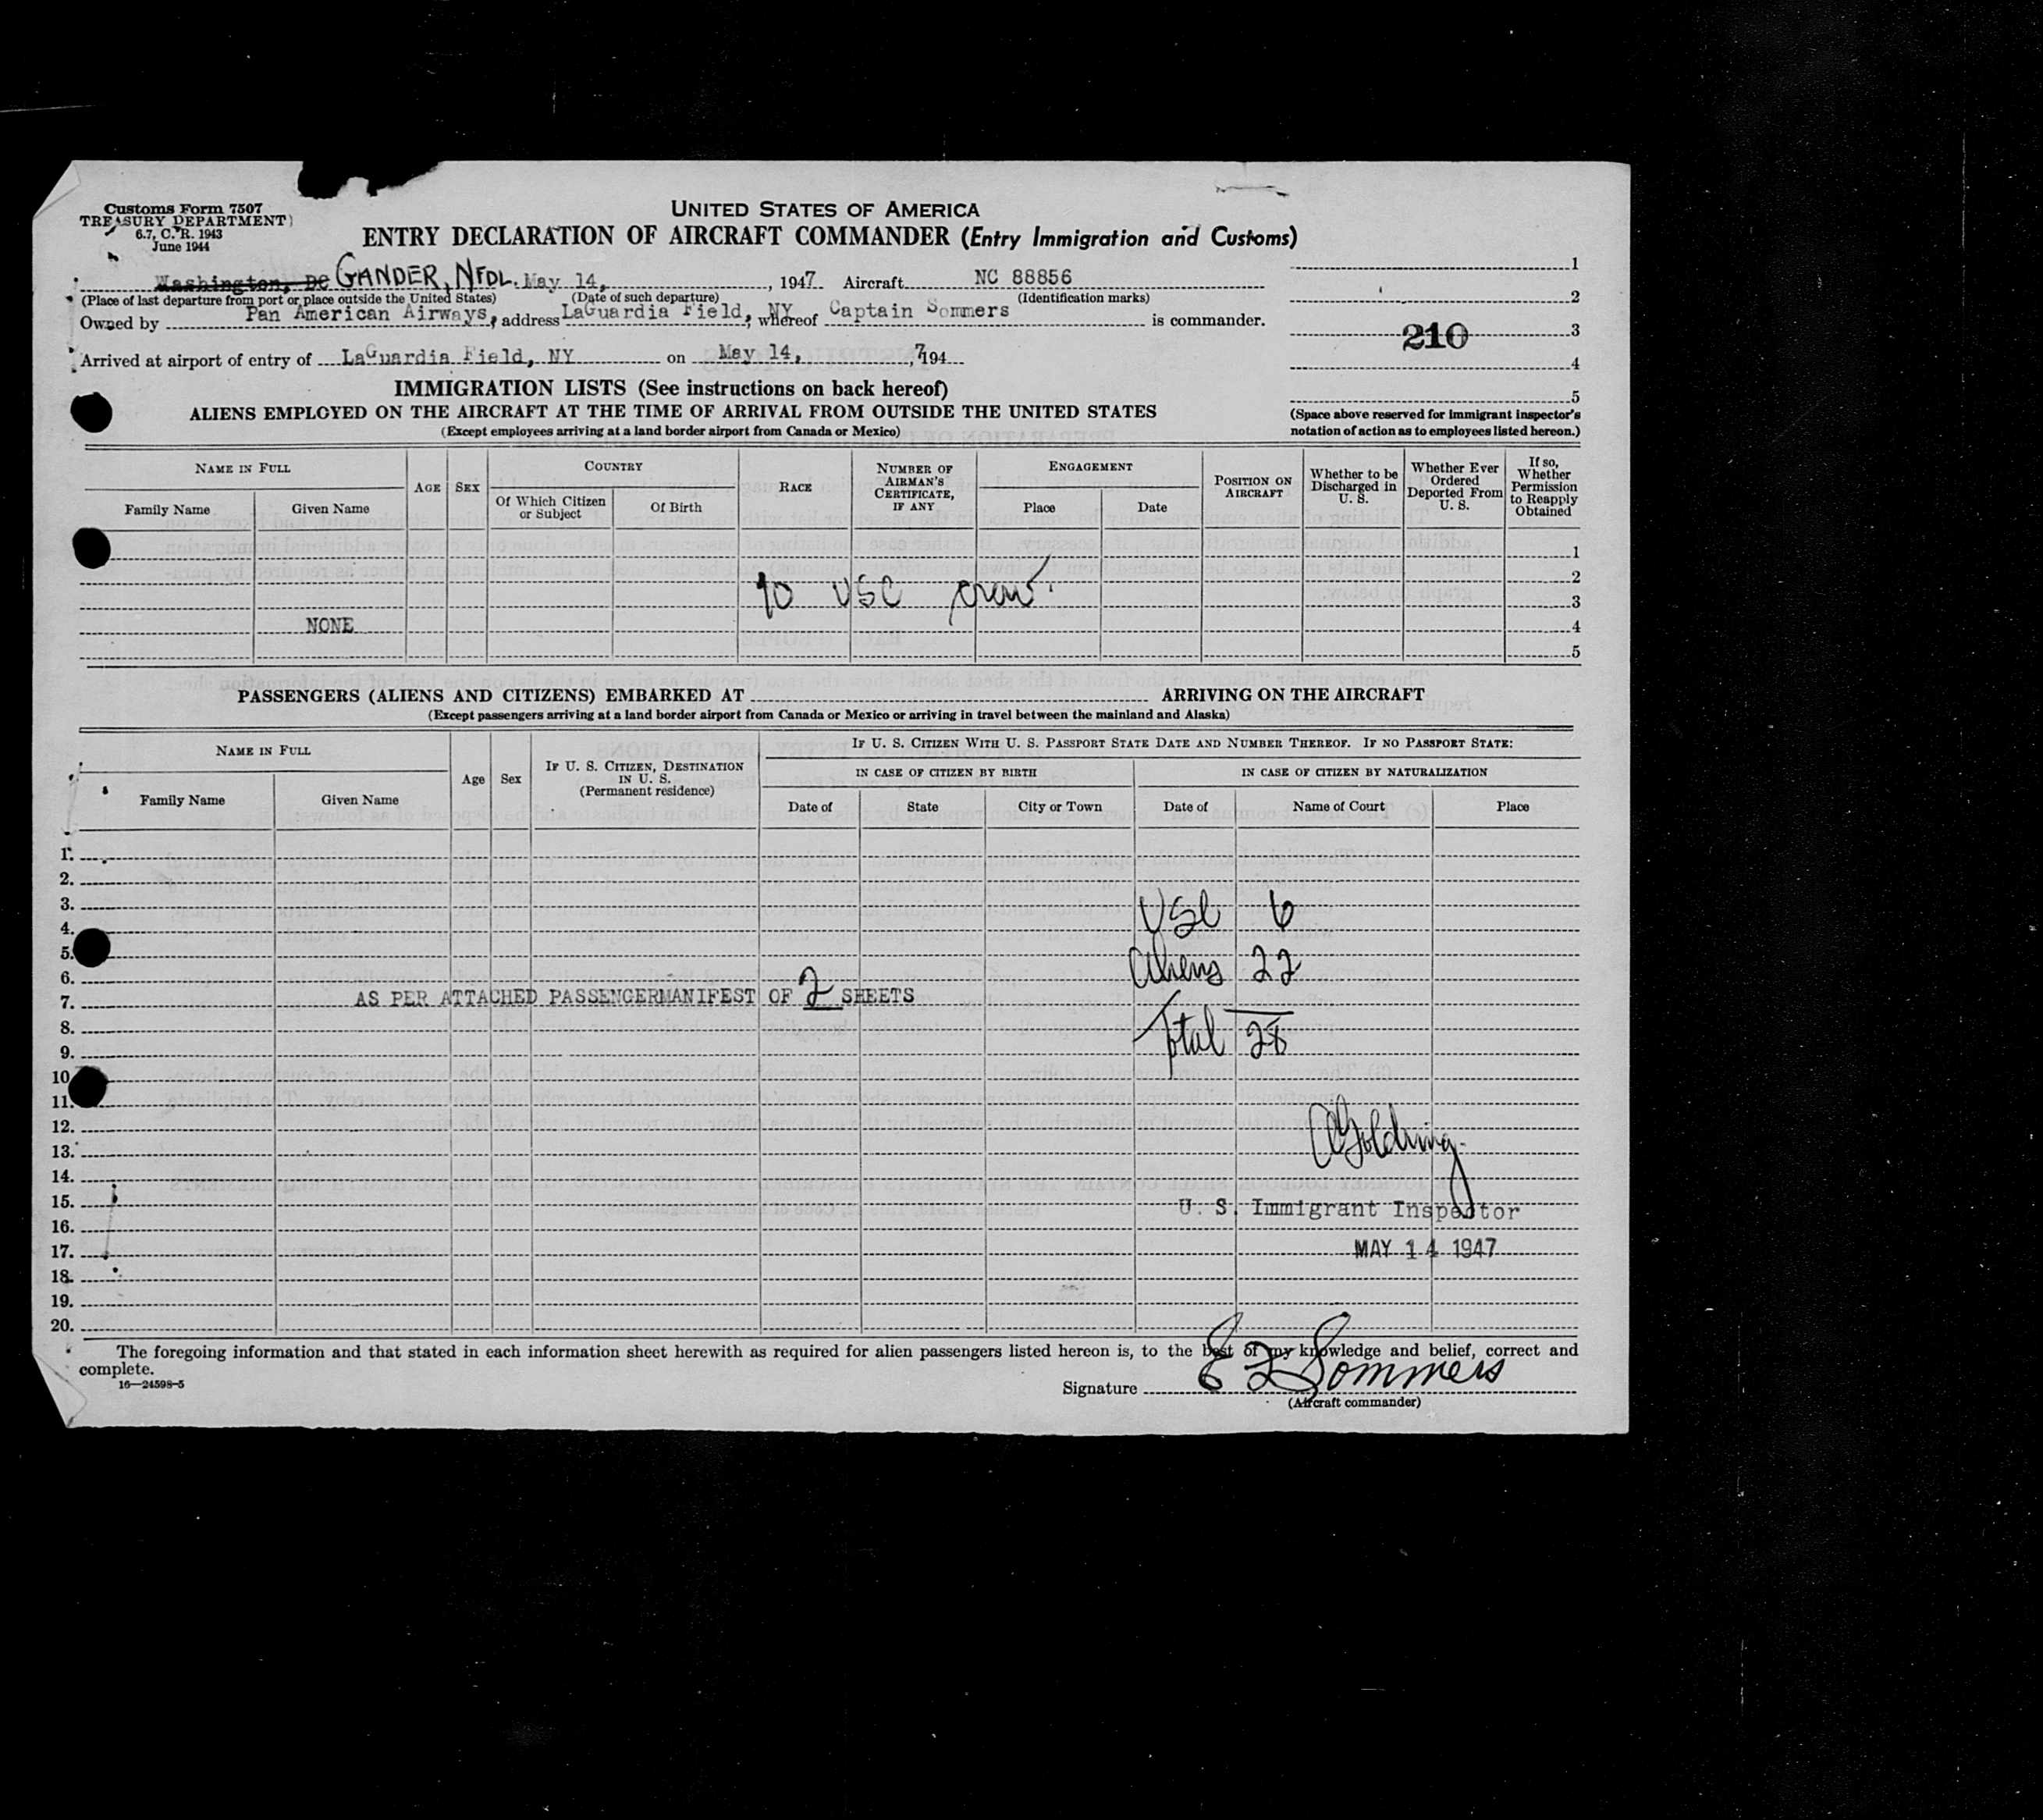 Customs Form 7507
TREASURY DEPARTMENT
6.7, C. R. 1943
June 1944
UNITED STATES OF AMERICA
ENTRY DECLARATION OF AIRCRAFT COMMANDER (Entry Immigration and Customs)
Washington, DC GANDER, NFDL. May 14, , 1947 Aircraft NC 88856
(Place of last departure from port or place outside the United States) (Date of such departure) (Identification marks)
Owned by Pan American Airways, address LaGuardia Field, NY whereof Captain Sommers is commander.
Arrived at airport of entry of LaGuardia Field, NY on May 14, , 7194
1
2
210 3
4
5
(Space above reserved for immigrant inspector's
notation of action as to employees listed hereon.)
IMMIGRATION LISTS (See instructions on back hereof)
ALIENS EMPLOYED ON THE AIRCRAFT AT THE TIME OF ARRIVAL FROM OUTSIDE THE UNITED STATES
(Except employees arriving at a land border airport from Canada or Mexico)
NAME IN FULL
Family Name
Given Name
AGE
SEX
COUNTRY
Of Which Citizen
or Subject
Of Birth
RACE
NUMBER OF
AIRMAN'S
CERTIFICATE,
IF ANY
ENGAGEMENT
Place
Date
POSITION ON
AIRCRAFT
Whether to be
Discharged in
U. S.
Whether Ever
Ordered
Deported From
U. S.
If so,
Whether
Permission
to Reapply
Obtained
1
2
10 USC crew. 3
NONE 4
5
PASSENGERS (ALIENS AND CITIZENS) EMBARKED AT ARRIVING ON THE AIRCRAFT
(Except passengers arriving at a land border airport from Canada or Mexico or arriving in travel between the mainland and Alaska)
NAME IN FULL
Family Name
Given Name
Age
Sex
IF U. S. CITIZEN, DESTINATION
IN U. S.
(Permanent residence)
IF U. S. CITIZEN WITH U. S. PASSPORT STATE DATE AND NUMBER THEREOF. IF NO PASSPORT STATE:
IN CASE OF CITIZEN BY BIRTH
IN CASE OF CITIZEN BY NATURALIZATION
Date of
State
City or Town
Date of
Name of Court
Place
1.
2.
3. USC 6
4.
5. Aliens 22
6.
7. AS PER ATTACHED PASSENGERMANIFEST OF 2 SHEETS
8. Total 28
9.
10
11.
12.
13. AGoldring
14.
15. U. S. Immigrant Inspector
16.
17. MAY 14 1947
18.
19.
20.
The foregoing information and that stated in each information sheet herewith as required for alien passengers listed hereon is, to the best of my knowledge and belief, correct and
complete.
16—24598-5
Signature E F Sommers
(Aircraft commander)